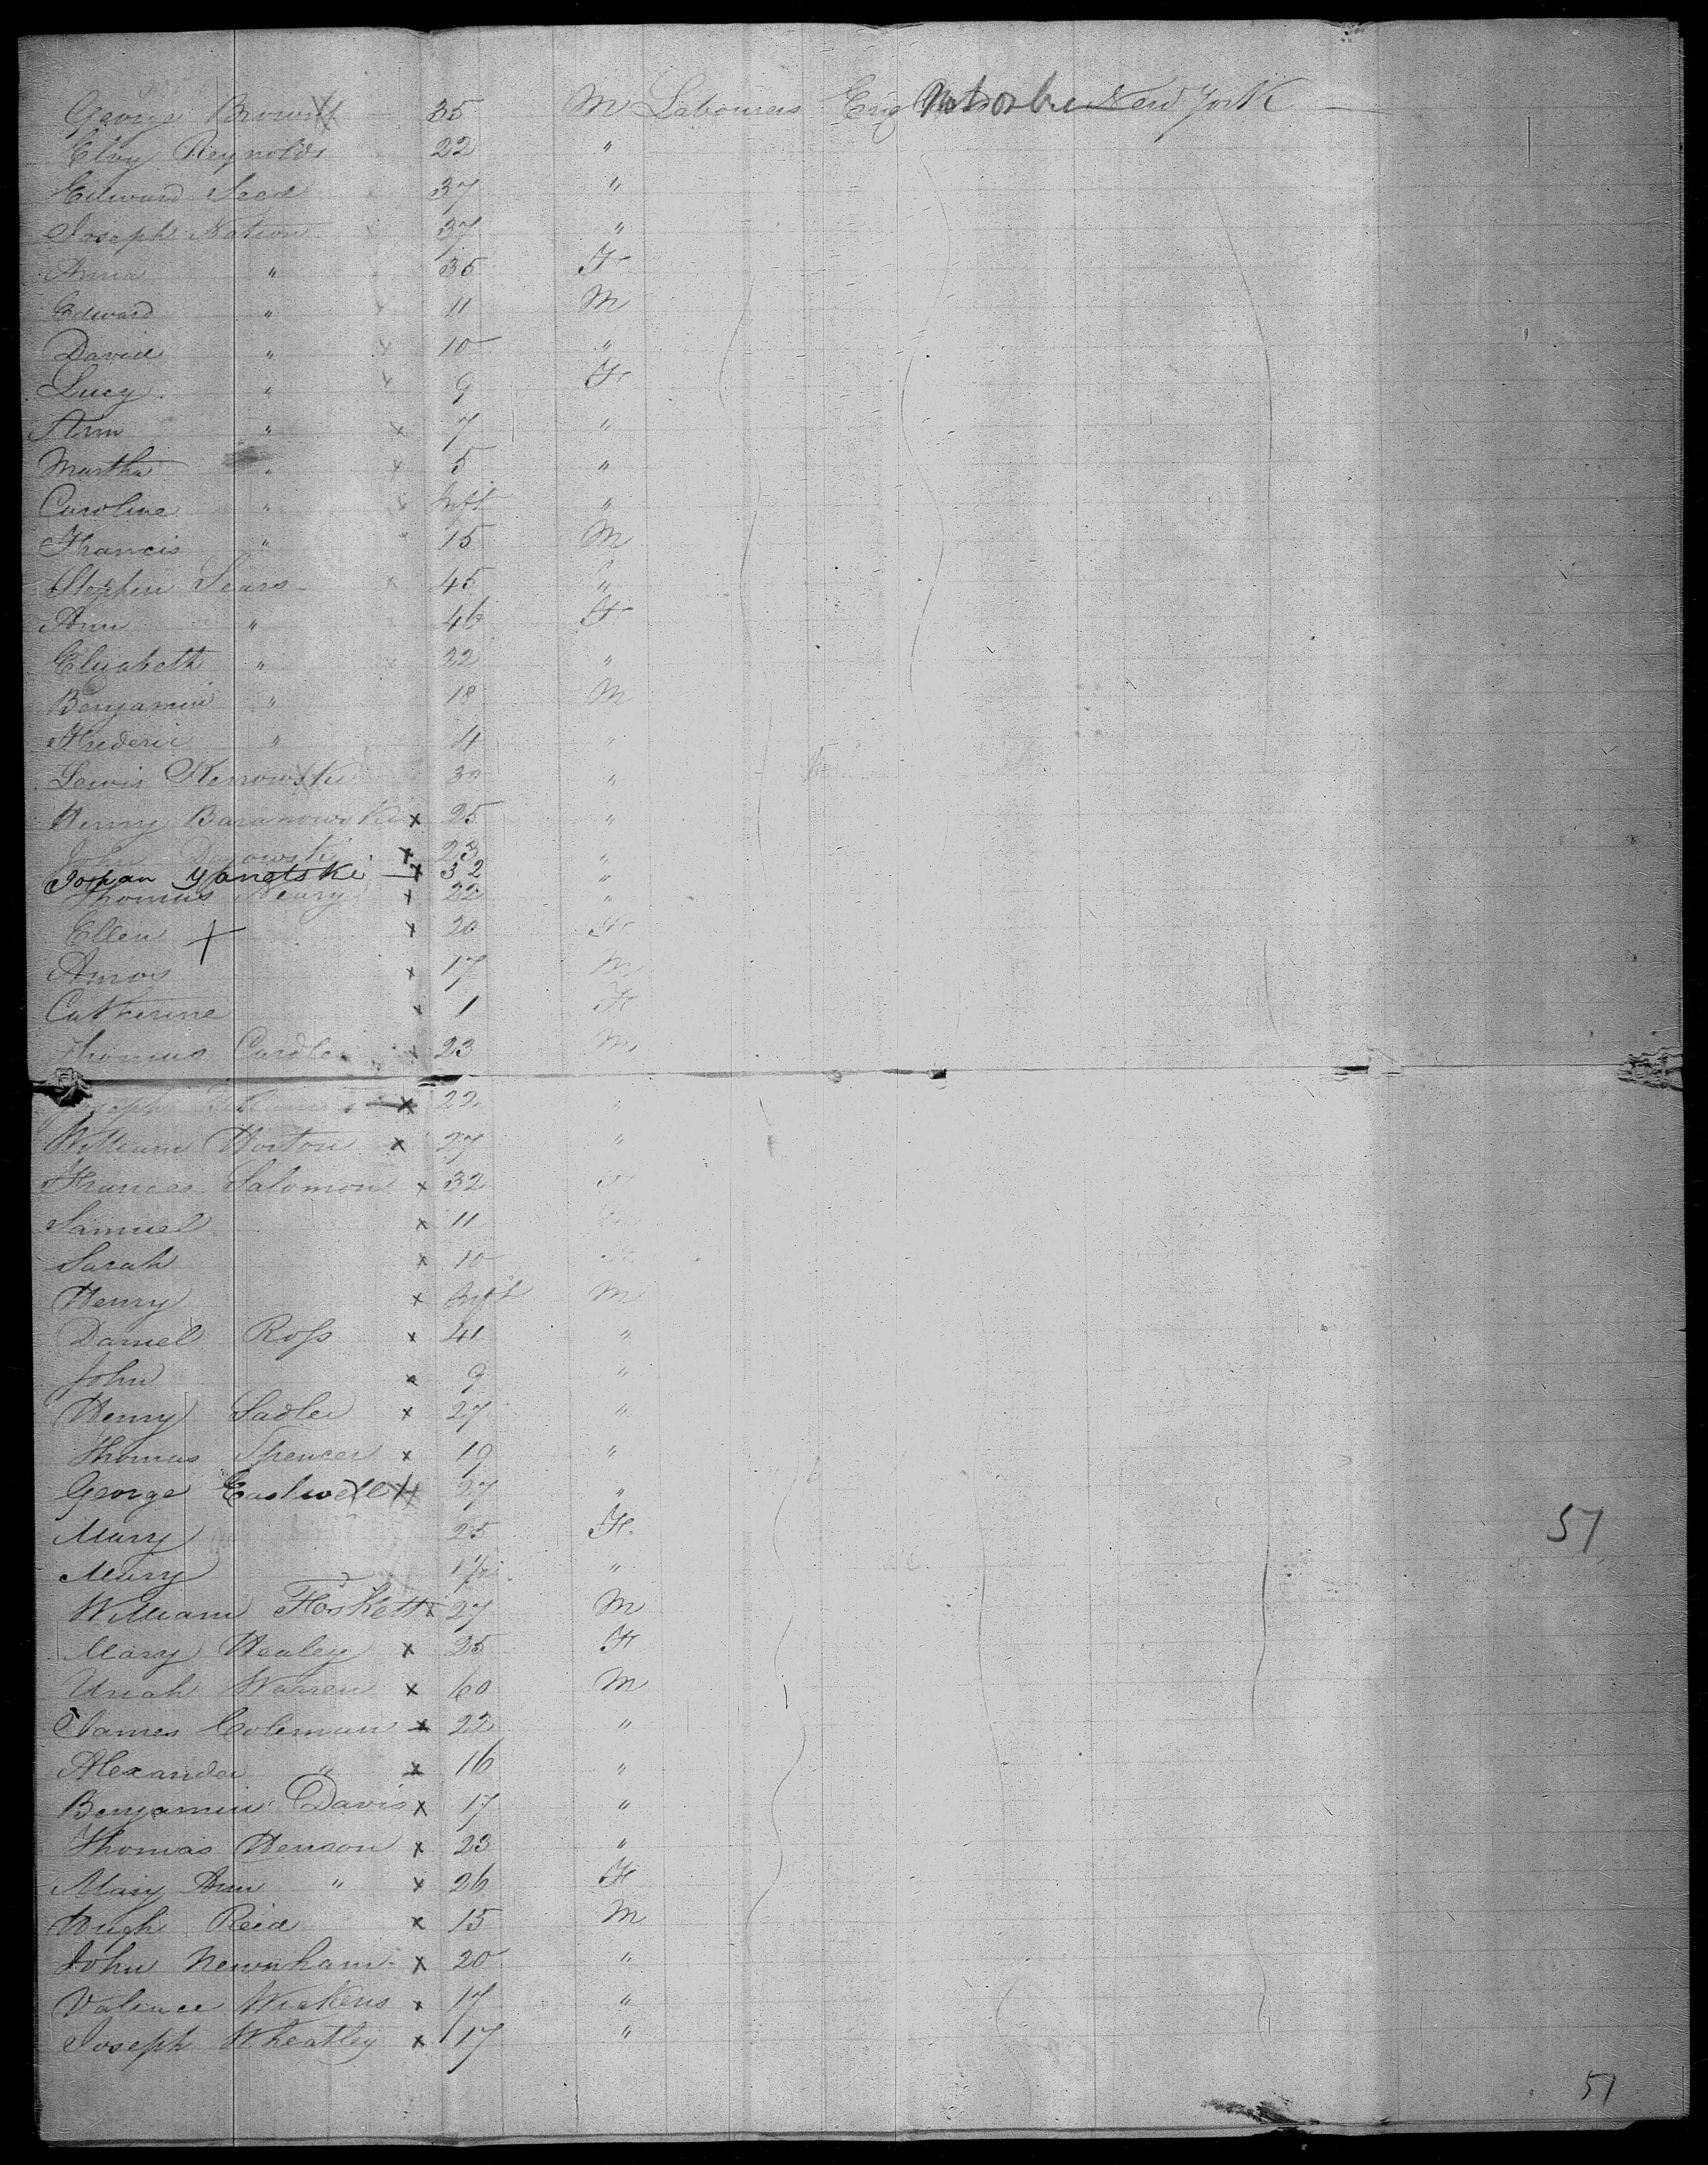 George Brown 35 M Labourers Eng New York
Elvy Reynolds 22 "
Edward Seed 37 "
Joseph Nation 37 "
Anna " 35 F
Edward " 11 M
David " 10 "
Lucy " 9 F
Ann " 7 "
Martha " 5 "
Caroline " Inft "
Francis " 15 M
Stephen Sears 45 "
Ann " 46 F
Elizabeth " 22 "
Benjamin " 18 M
Frederic " 4 "
Lewis 30 "
Henry Baranowski x 25 "
John x 23 "
Johan Yanetski x 32 "
Thomas Neary x 22 "
Ellen x 20 F
Amos x 17 M
Catherine x 1 F
Thomas x 23 M
Joseph x 22 "
William Horton x 27 "
Frances Salomon x 32 F
Samuel x 11
Sarah x 10
Henry x Inft M
Daniel Roſs x 41 "
John x 9 "
Henry Sadler x 27 "
Thomas Spencer x 19 "
George Eastwell 27 "
Mary 25 F
Mary "
William Hoskett x 27 M
Mary Healey x 25 F
Uriah Warren x 60 M
James Coleman x 22 "
Alexander " x 16 "
Benjamin Davis x 17 "
Thomas Henson x 23 "
Mary Ann " x 26 F
Hugh Reid x 15 M
John Newnham x 20 "
Valence Wickens x 17 "
Joseph Wheatley x 17 "
51
51